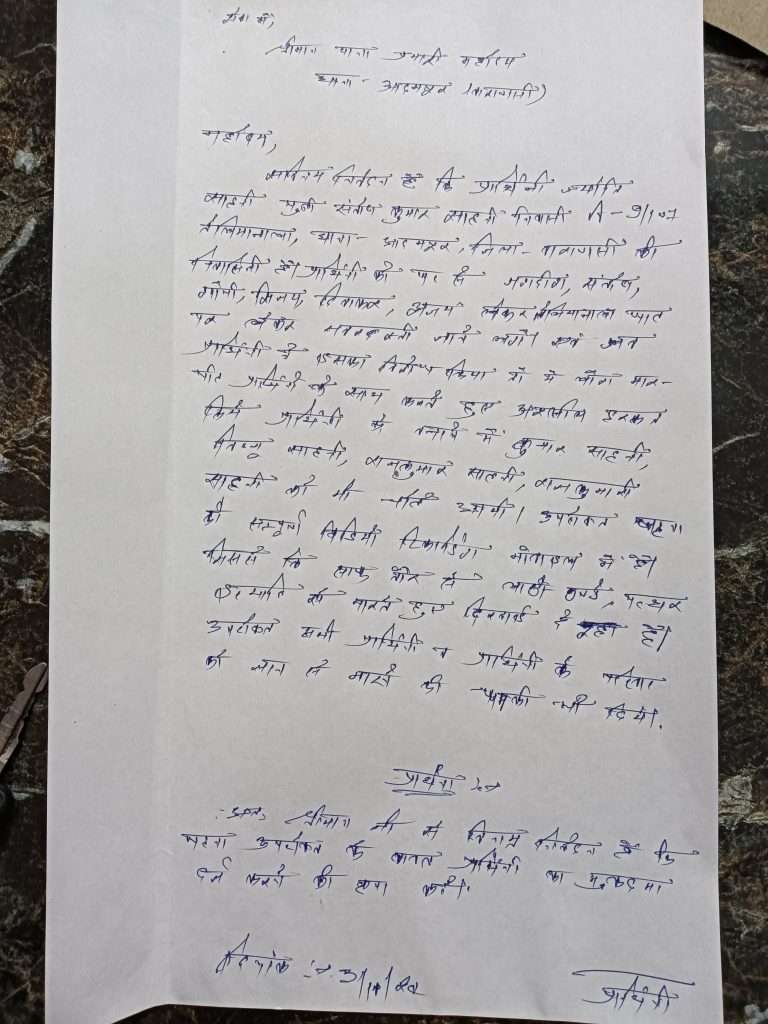 सेवा में,
श्रीमान थाना प्रभारी महोदय
थाना - आदमपुर (वाराणसी)
महोदय,
सविनय निवेदन है कि प्रार्थिनी ज्योति
साहनी पुत्री संतोष कुमार साहनी निवासी A - 9/107
तेलियानाला, थाना - आदमपुर, जिला - वाराणसी की
निवासिनी है। प्रार्थिनी को घर से जगदीश, संतोष,
गोपी, विजय, दिवाकर, अजय लेकर तेलियानाला घाट
पर लेकर जबरदस्ती जाने लगे।
प्रार्थिनी ने इसका विरोध किया तो ये लोग मार-
पीट प्रार्थिनी के साथ करते हुए अश्लील हरकत
किये प्रार्थिनी के बचाव में कुमार साहनी,
विष्णु साहनी, राजकुमार साहनी, राजकुमारी
साहनी को भी चोटें आयी। उपरोक्त घटना
की सम्पूर्ण विडियो रिकार्डिंग मोबाइल में है।
जिससे कि साफ तौर से लाठी डण्डे, पत्थर
इत्यादि से मारते हुए दिखाई दे रहा है।
उपरोक्त सभी प्रार्थिनी व प्रार्थिनी के परिवार
को जान से मारने की धमकी भी दिये।
प्रार्थना :-
अतः श्रीमान जी से विनम्र निवेदन है कि
घटना उपरोक्त के बावत प्रार्थिनी का मुकदमा
दर्ज करने की कृपा करें।
दिनांक :-
प्रार्थिनी